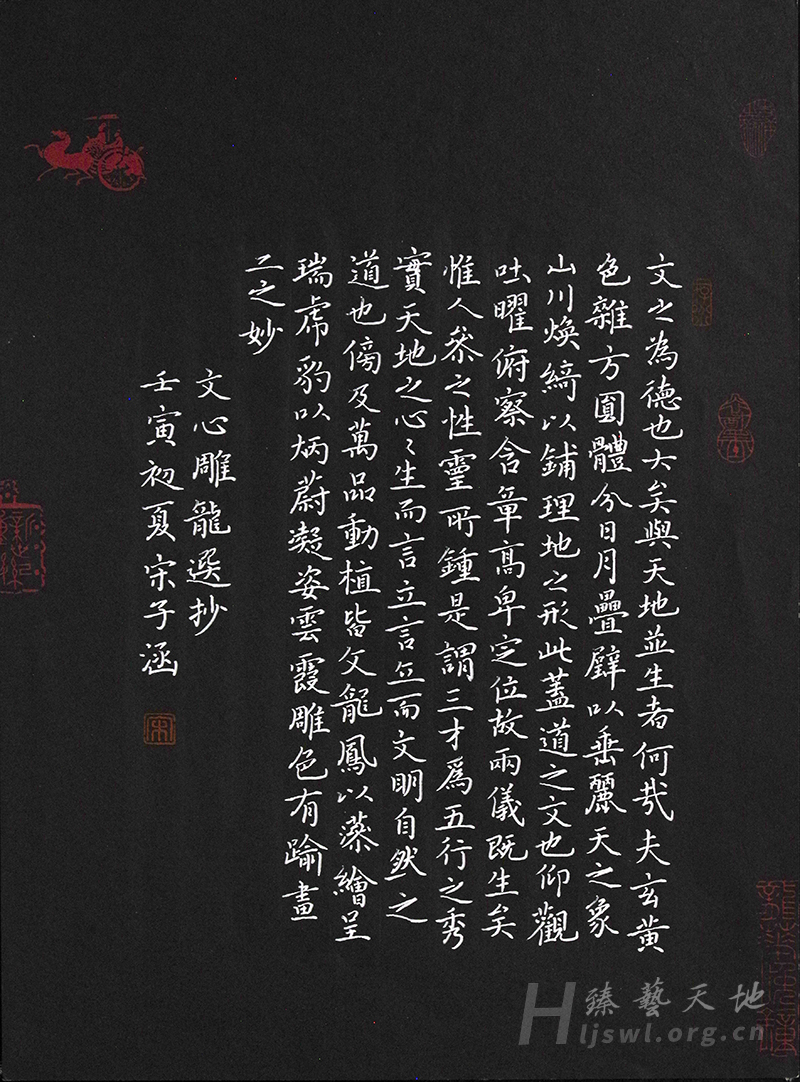 文之為德也大矣與天地並生者何哉夫玄黃
色雜方圓體分日月疊璧以垂麗天之象
山川煥綺以鋪理地之形此蓋道之文也仰觀
吐曜俯察含章高卑定位故兩儀既生矣
惟人叅之性靈所鍾是謂三才爲五行之秀
實天地之心〻生而言立言立而文明自然之
道也傍及萬品動植皆文龍鳳以藻繪呈
瑞虎豹以炳蔚凝姿雲霞雕色有踰畫
工之妙
文心雕龍選抄
壬寅初夏宋子涵
宋
臻藝天地
Hljswl.org.cn